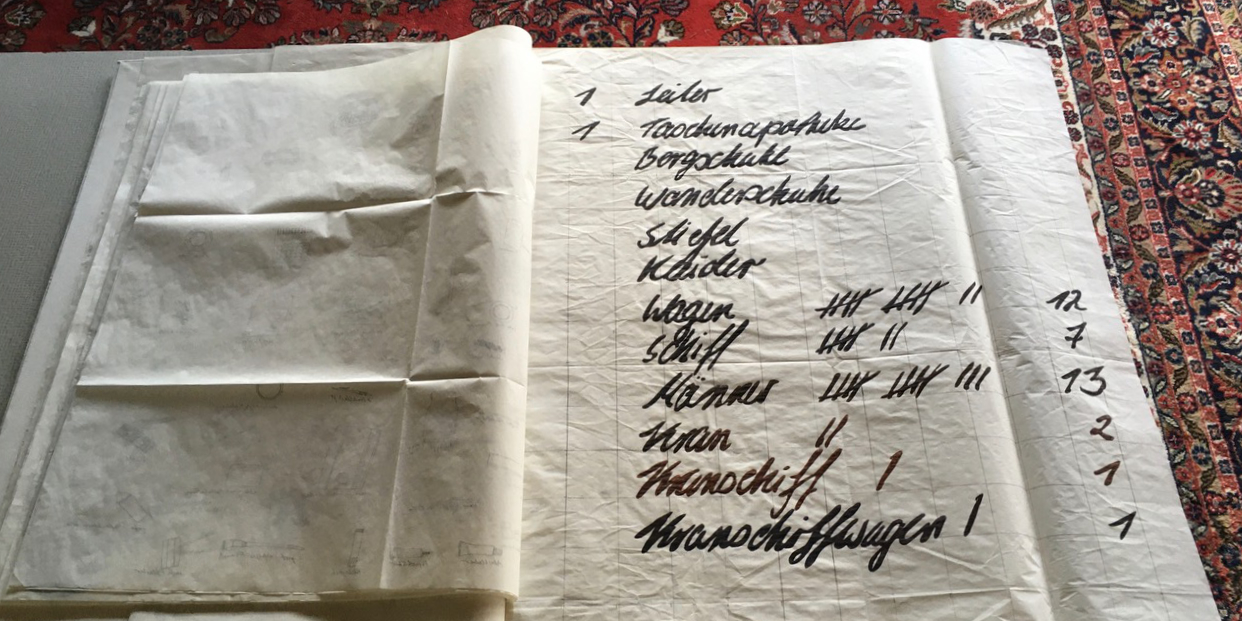 1 Leiter
1 Taschenapotheke
Bergschuhe
Wanderschuhe
Stiefel
Kleider
Wagen 𝍸 𝍸 || 12
Schiff 𝍸 || 7
Männer 𝍸 𝍸 ||| 13
Kran || 2
Kranschiff | 1
Kranschiffwagen | 1